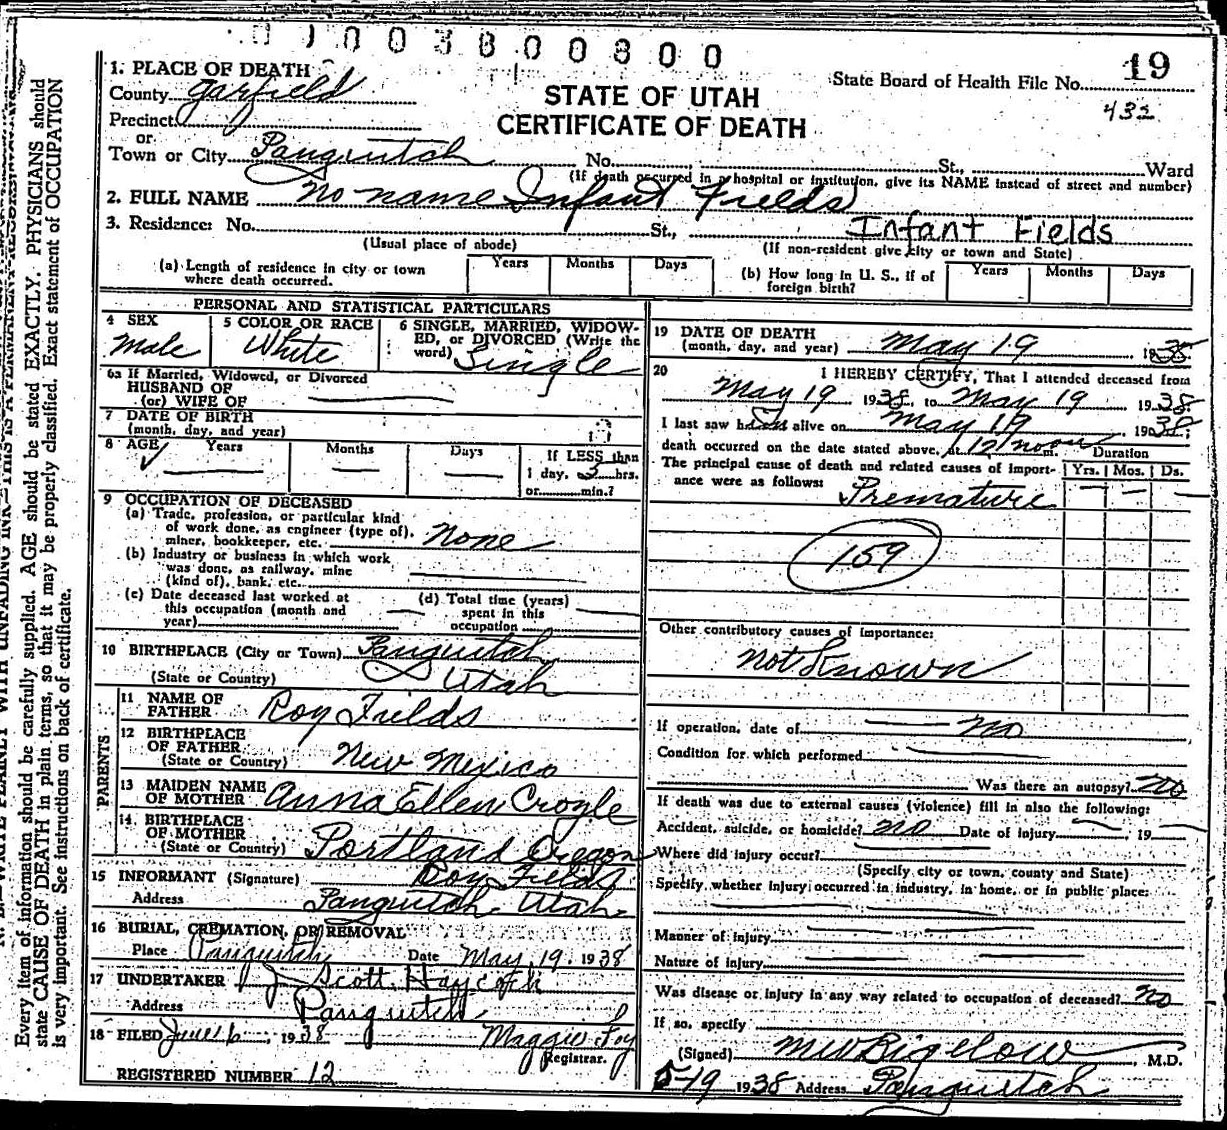 0 1 0 0 3 8 0 0 8 0 0
19
State Board of Health File No.
432
STATE OF UTAH
CERTIFICATE OF DEATH
1. PLACE OF DEATH
County Garfield
Precinct
or
Town or City Panguitch No. St., Ward
(If death occurred in a hospital or institution, give its NAME instead of street and number)
2. FULL NAME no name Infant Fields
3. Residence: No. St., Infant Fields
(Usual place of abode) (If non-resident give city or town and State)
(a) Length of residence in city or town where death occurred. Years Months Days (b) How long in U. S., if of foreign birth? Years Months Days
PERSONAL AND STATISTICAL PARTICULARS
4 SEX Male
5 COLOR OR RACE White
6 SINGLE, MARRIED, WIDOW-
ED, or DIVORCED (Write the
word) Single
6a If Married, Widowed, or Divorced
HUSBAND OF
(or) WIFE OF
7 DATE OF BIRTH
(month, day, and year)
8 AGE Years Months Days If LESS than
1 day, 3 hrs.
or min.?
9 OCCUPATION OF DECEASED
(a) Trade, profession, or particular kind
of work done, as engineer (type of),
miner, bookkeeper, etc. None
(b) Industry or business in which work
was done, as railway, mine
(kind of), bank, etc.
(c) Date deceased last worked at
this occupation (month and
year)
(d) Total time (years)
spent in this
occupation
10 BIRTHPLACE (City or Town) Panguitch
(State or Country) Utah
PARENTS
11 NAME OF
FATHER Roy Fields
12 BIRTHPLACE
OF FATHER
(State or Country) New Mexico
13 MAIDEN NAME
OF MOTHER Anna Ellen Croyle
14 BIRTHPLACE
OF MOTHER
(State or Country) Portland Oregon
15 INFORMANT (Signature) Roy Fields
Address Panguitch Utah
16 BURIAL, CREMATION, OR REMOVAL
Place Panguitch Date May 19, 1938
17 UNDERTAKER J Scott Haycock
Address Panguitch
18 FILED June 6, 1938 Maggie Foy
Registrar.
REGISTERED NUMBER 12
19 DATE OF DEATH
(month, day, and year) May 19 1938
20 I HEREBY CERTIFY, That I attended deceased from
May 19 1938, to May 19 1938
I last saw him alive on May 19 1938;
death occurred on the date stated above, at 12 noon m. Duration
The principal cause of death and related causes of import-
ance were as follows: Yrs. Mos. Ds.
Premature
159
Other contributory causes of importance:
not Known
If operation, date of no
Condition for which performed
Was there an autopsy? no
If death was due to external causes (violence) fill in also the following:
Accident, suicide, or homicide? no Date of injury , 19
Where did injury occur?
(Specify city or town, county and State)
Specify, whether injury occurred in industry, in home, or in public place:
Manner of injury
Nature of injury
Was disease or injury in any way related to occupation of deceased? no
If so, specify
(Signed) MW Bigelow, M.D.
5-19 1938 Address Panguitch
Every item of information should be carefully supplied. AGE should be stated EXACTLY. PHYSICIANS should
state CAUSE OF DEATH in plain terms, so that it may be properly classified. Exact statement of OCCUPATION
is very important. See instructions on back of certificate.